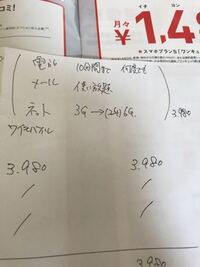 コミ!
月々
イチ ヨン
¥1,4
★スマホプランS「ワンキュ
電話 10分間まで 何度でも
メール 使い放題
ネット 3G→(2年)6G 3.980
ワイモバイル
3.980 3.980
3.980